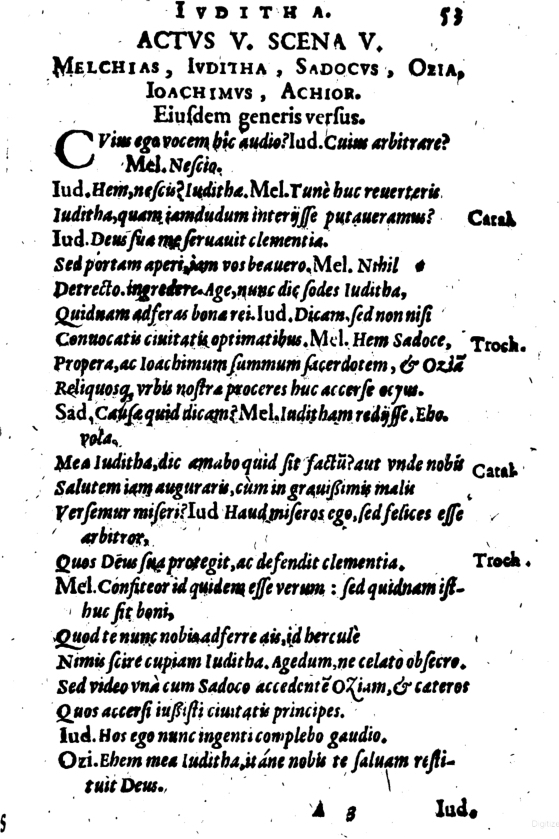 IVDITHA. 53
ACTVS V. SCENA V.
MELCHIAS, IVDITHA, SADOCVS, OZIA,
IOACHIMVS, ACHIOR.
Eiuſdem generis verſus.
CVius ego vocem hic audio? Iud. Cuius arbitrare?
Mel. Neſcio.
Iud. Hem, neſcis? Iuditha. Mel. Tunè huc reuerteris
Iuditha, quam iamdudum interijſſe putaueramus? Catal.
Iud. Deus ſua me ſeruauit clementia.
Sed portam aperi, iam vos beauero. Mel. Nihil
Detrecto. ingredere. Age, nunc dic ſodes Iuditha,
Quidnam adferas bonæ rei. Iud. Dicam, ſed non niſi
Conuocatis ciuitatis optimatibus. Mel. Hem Sadoce, Troch.
Propera, ac Ioachimum ſummum ſacerdotem, & Oziā
Reliquosq, vrbis noſtræ proceres huc accerſe ocyus.
Sad. Cauſæ quid dicam? Mel. Iuditham redijſſe. Eho.
vola.
Mea Iuditha, dic amabo quid ſit factū? aut vnde nobis Catal.
Salutem iam auguraris, cùm in grauißimis malis
Verſemur miſeri? Iud Haud miſeros ego, ſed felices eſſe
arbitror,
Quos Deus ſua protegit, ac defendit clementia. Troch.
Mel. Confiteor id quidem eſſe verum : ſed quidnam iſt-
huc ſit boni,
Quod te nunc nobis adferre ais, id herculè
Nimis ſcire cupiam Iuditha. Agedum, ne celato obſecro.
Sed video vnà cum Sadoco accedentē Oziam, & cæteros
Quos accerſi iußiſti ciuitatis principes.
Iud. Hos ego nunc ingenti complebo gaudio.
Ozi. Ehem mea Iuditha, itáne nobis te ſaluam reſti-
tuit Deus.
A 3 Iud.